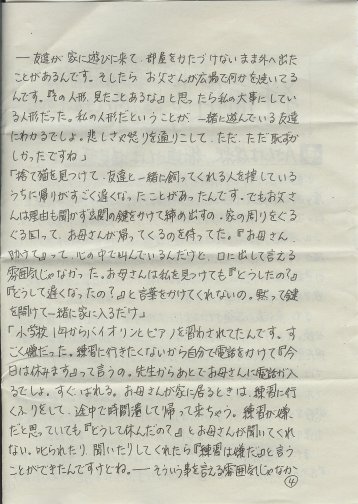 ──友達が家に遊びに来て、部屋をかたづけないまま外へ出た
ことがあるんです。そしたら お父さんが広場で何かを焼いてる
んです。『その人形、見たことあるな』と思ったら私の大事にしてい
る人形だった。私の人形だということが、一緒に遊んでいる友達
にわかるでしょ。悲しさや怒りを通りこして、ただ、ただ恥ずか
しかったですね」
「捨て猫を見つけて、友達と一緒に飼ってくれる人を捜している
うちに帰りがすごく遅くなったことがあったんです。でもお父さ
んは理由も聞かず玄関の鍵をかけて締め出すの。家の周りをぐる
ぐる回って、お母さんが帰ってくるのを待ってた。『お母さん、
助けて』って、心の中で叫んでいるんだけど、口に出して言える
雰囲気じゃなかった。お母さんは私を見つけても『どうしたの?』
『どうして遅くなったの?』と言葉をかけてくれないの。黙って鍵
を開けて一緒に家に入るだけ」
「小学校1年からバイオリンとピアノを習わされてたんです。す
ごく嫌だった。練習に行きたくないから自分で電話をかけて『今
日は休みます』って言うの。先生からあとでお母さんに電話が入
るでしょ。すぐ、ばれる。お母さんが家に居るときは、練習に行
くふりをして、途中で時間潰して帰って来ちゃう。練習が嫌
だと思っていても『どうして休んだの?』とお母さんが聞いてくれ
ない。叱られたり、聞いたりしてくれたら『練習は嫌だ』と言う
ことができたんですけどね。──そういう事を言える雰囲気じゃなか
④